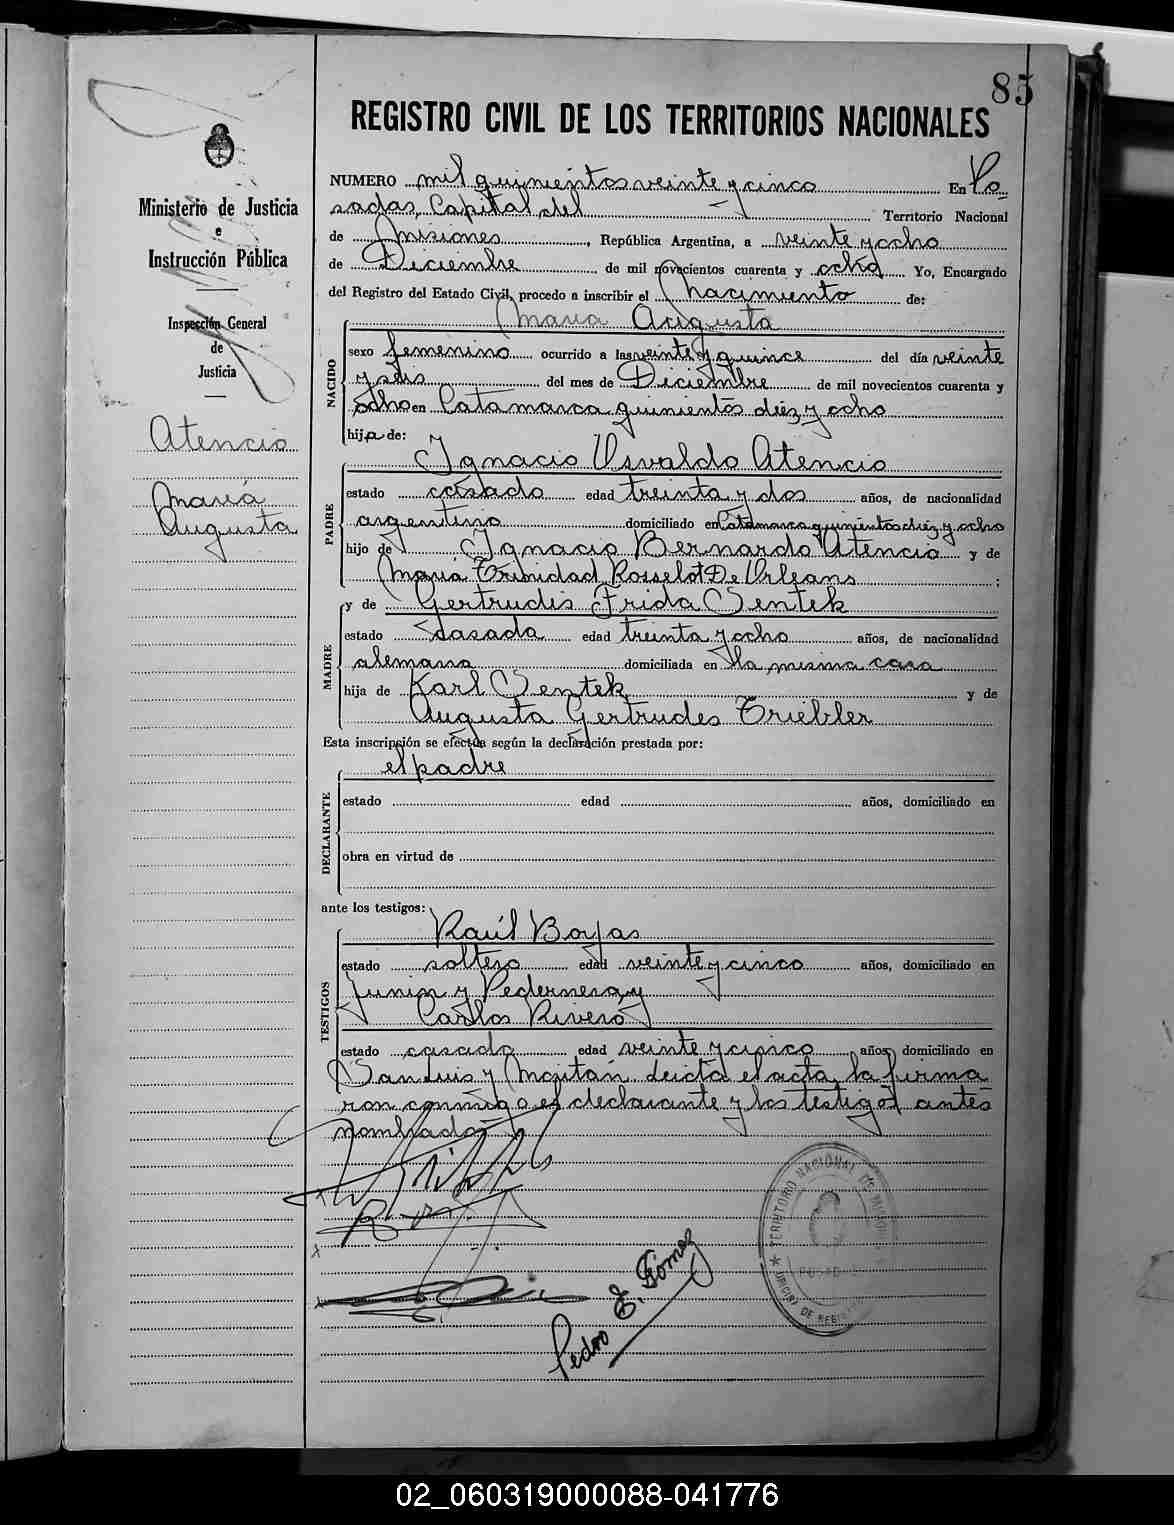 85
REGISTRO CIVIL DE LOS TERRITORIOS NACIONALES
Ministerio de Justicia
e
Instrucción Pública
Inspección General
de
Justicia
Atencio
María
Augusta
NUMERO mil quinientos veinte y cinco En Po
sadas, Capital del Territorio Nacional
de Misiones, República Argentina, a veinte y ocho
de Diciembre de mil novecientos cuarenta y ocho Yo, Encargado
del Registro del Estado Civil, procedo a inscribir el Nacimiento de:
María Augusta
NACIDO
sexo femenino ocurrido a las veinte y quince del día veinte
y seis del mes de Diciembre de mil novecientos cuarenta y
ocho en Catamarca quinientos diez y ocho
hija de:
Ignacio Osvaldo Atencio
PADRE
estado casado edad treinta y dos años, de nacionalidad
argentino domiciliado en Catamarca quinientos diez y ocho
hijo de Ignacio Bernardo Atencio y de
María Trinidad Rosselot De Orleans ;
y de Gertrudis Frida Sentek
MADRE
estado casada edad treinta y ocho años, de nacionalidad
alemana domiciliada en la misma casa
hija de Karl Sentek y de
Augusta Gertrudes Triebler
Esta inscripción se efectúa según la declaración prestada por:
el padre
DECLARANTE
estado edad años, domiciliado en
obra en virtud de
ante los testigos:
Raúl Borjas
TESTIGOS
estado soltero edad veinte y cinco años, domiciliado en
Junin y Pedernera, y
Carlos Rivero
estado casado edad veinte y cinco años, domiciliado en
San Luis y Mojitán, leida el acta, la firma
ron conmigo el declarante y los testigos antes
nombrados
Pedro E. Gómez
TERRITORIO NACIONAL DE MISIONES
02_060319000088-041776